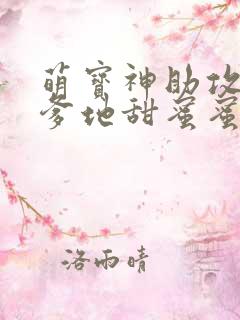 萌宝神助攻
爹地甜蜜蜜
洛雨晴